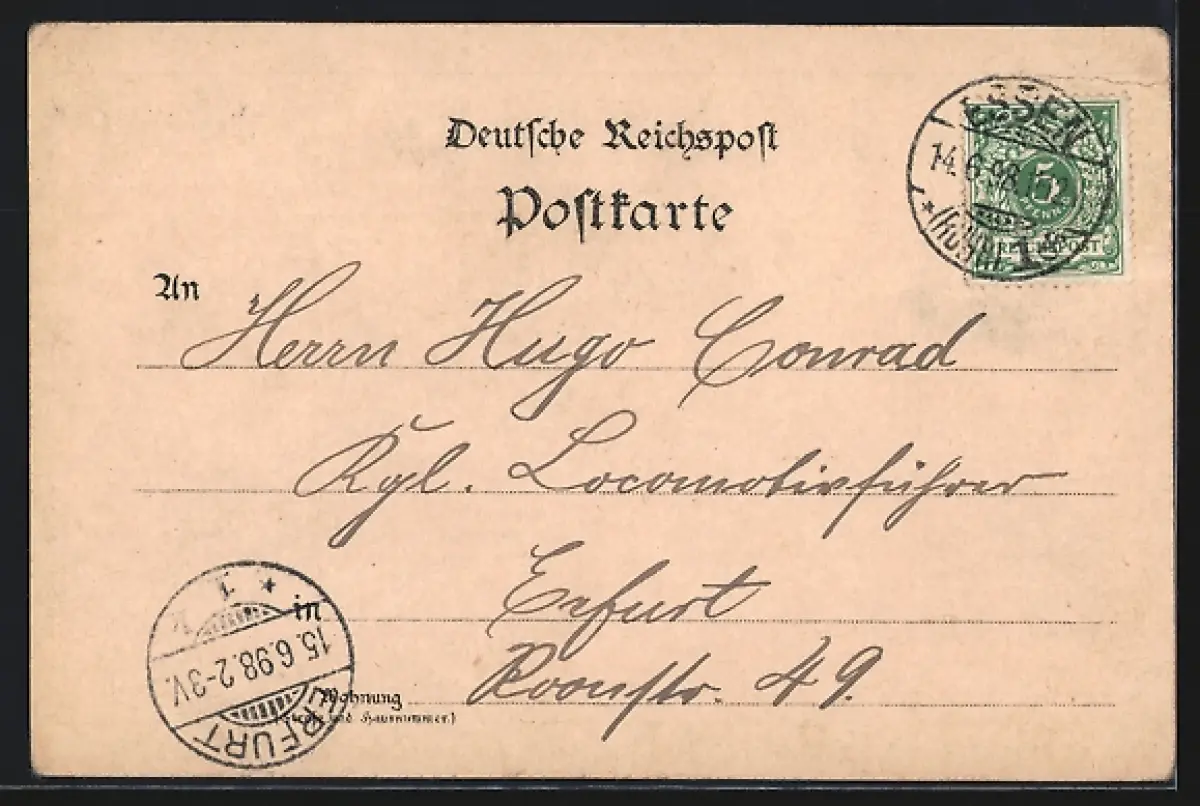 Deutsche Reichspost
Postkarte
ESSEN
14.6.98.
* (RUHR) 1 *
5
PFENNIG
REICHSPOST
An
Herrn Hugo Conrad
Kgl. Locomotivführer
in Erfurt
Wohnung Roonstr. 49.
(Straße und Hausnummer.)
* 1 *
15.6.98.2-3V.
ERFURT